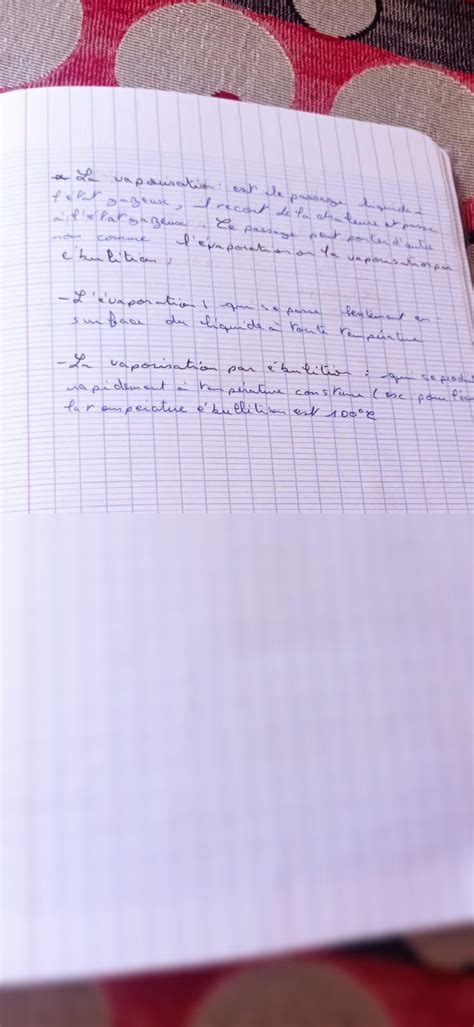 * La vaporisation : est le passage liquide à
l'état gazeuse, il recoit de la chaleur et passe
à l'état gazeuse. Ce passage peut porter d'autre
non comme l'évaporation ou la vaporisation par
ébulition,
- L'évaporation : qui se passe lentement en
surface du liquide à toute température
- La vaporisation par ébulition : qui se produi
rapidement à température constante (exc pour l'eau
la température ébullition est 100°C